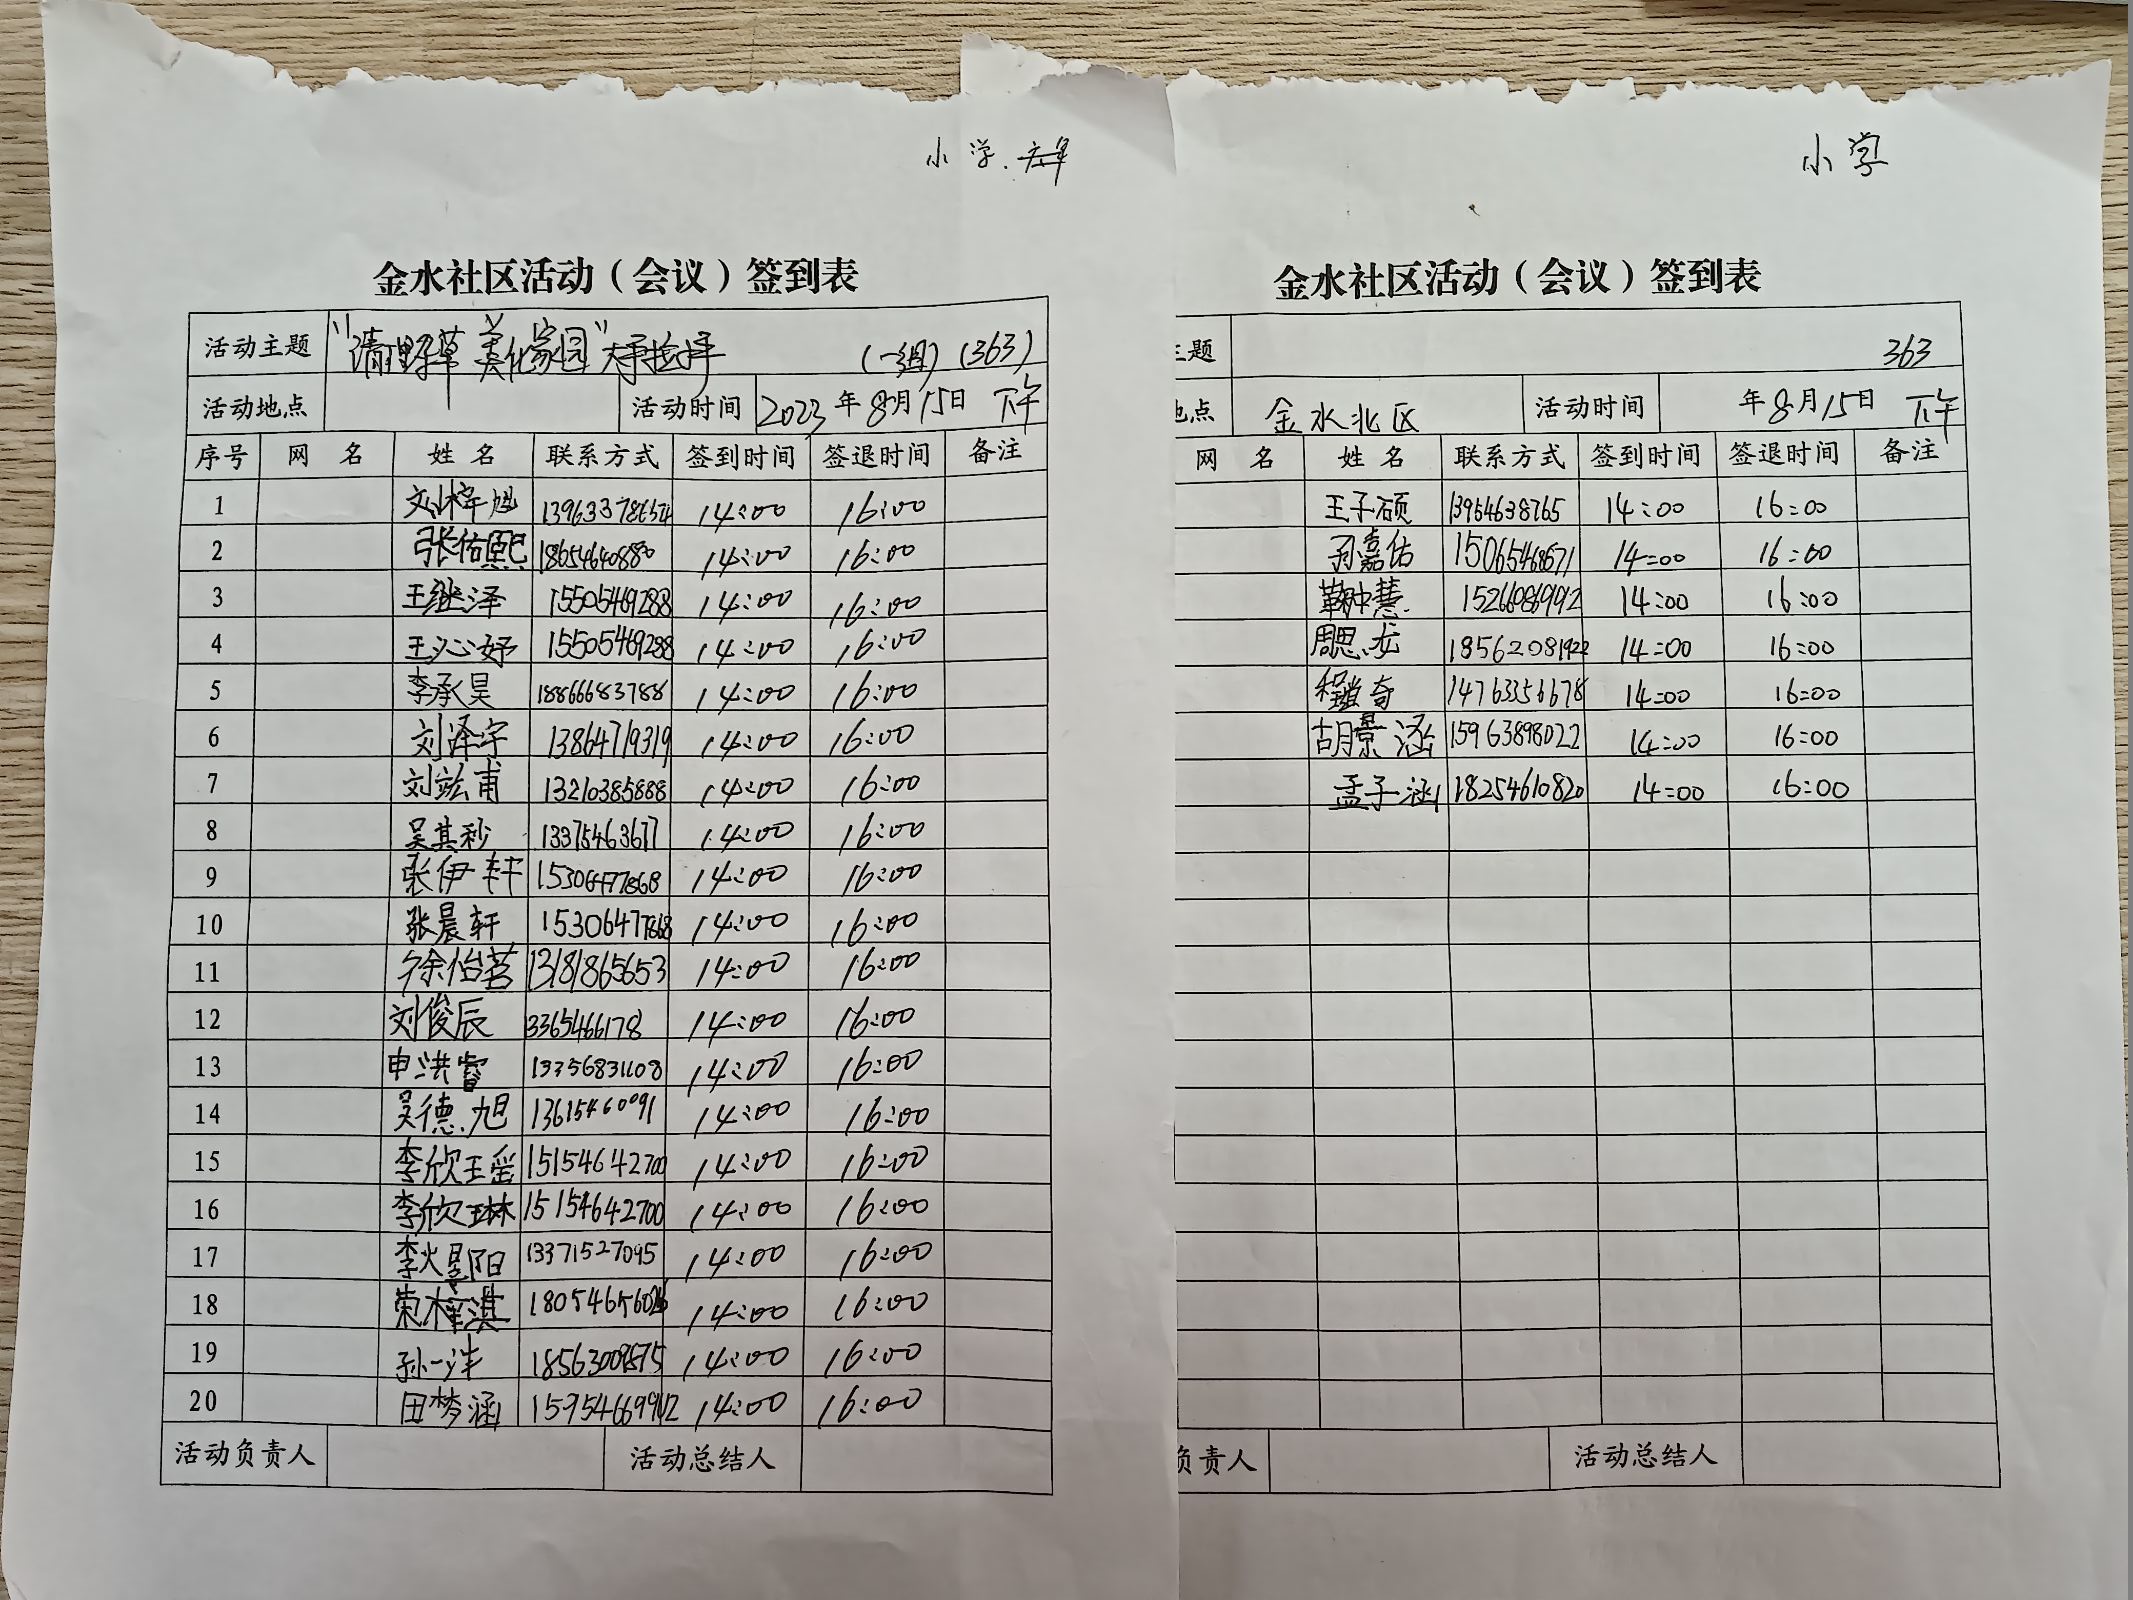 小学.
金水社区活动（会议）签到表
活动主题 "清理野草 美化家园" (一组) (363)
活动地点 活动时间 2023年8月15日 下午
序号 网 名 姓 名 联系方式 签到时间 签退时间 备注
1 刘梓旭 14:00 16:00
2 张佑熙 18654640880 14:00 16:00
3 王继泽 15505469288 14:00 16:00
4 王沁妤 15505469288 14:00 16:00
5 李承昊 18866683788 14:00 16:00
6 刘泽宇 13864719319 14:00 16:00
7 刘竑甫 13210385888 14:00 16:00
8 吴其秒 13375463677 14:00 16:00
9 张伊轩 15306477868 14:00 16:00
10 张晨轩 15306477868 14:00 16:00
11 徐怡茗 13181865653 14:00 16:00
12 刘俊辰 3365466178 14:00 16:00
13 申洪睿 13356831108 14:00 16:00
14 吴德旭 13615460091 14:00 16:00
15 李欣瑶 15154642700 14:00 16:00
16 李欣琳 15154642700 14:00 16:00
17 李焜阳 13371527095 14:00 16:00
18 荣梓淇 14:00 16:00
19 孙一沣 18563009875 14:00 16:00
20 田梦涵 14:00 16:00
活动负责人 活动总结人
小学
金水社区活动（会议）签到表
主题 363
地点 金水北区 活动时间 年8月15日 下午
网 名 姓 名 联系方式 签到时间 签退时间 备注
王子硕 13954638765 14:00 16:00
孙嘉佑 15065468671 14:00 16:00
15266086992 14:00 16:00
周思龙 18562081922 14:00 16:00
14763356678 14:00 16:00
胡景涵 15963898022 14:00 16:00
孟子涵 18254610820 14:00 16:00
负责人 活动总结人